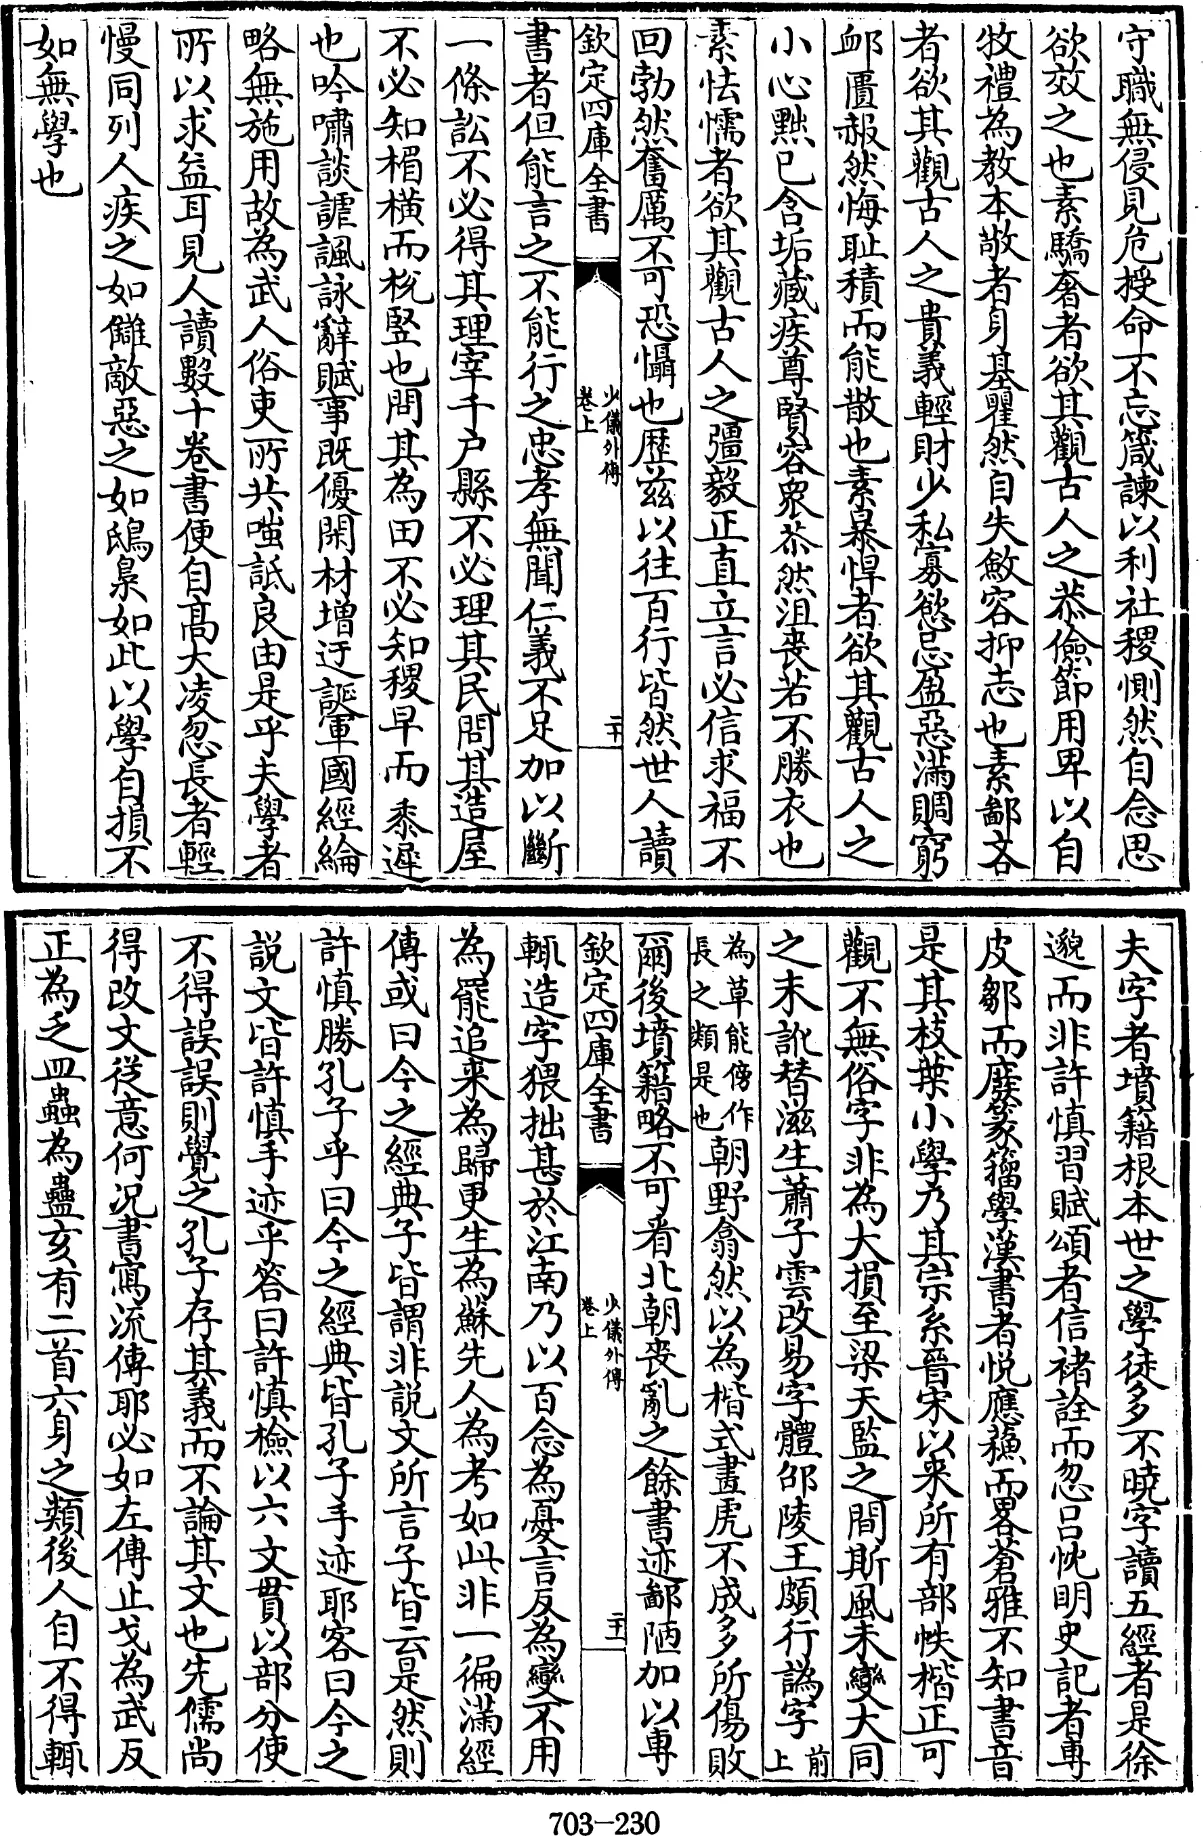 守職無侵見危授命不忘箴諫以利社稷惻然自念思
欲效之也素驕奢者欲其觀古人之恭儉節用卑以自
牧禮為教本敬者身基瞿然自失斂容抑志也素鄙吝
者欲其觀古人之貴義輕財少私寡慾忌盈惡滿賙窮
卹匱赧然悔恥積而能散也素暴悍者欲其觀古人之
小心黜已含垢藏疾尊賢容衆苶然沮喪若不勝衣也
素怯懦者欲其觀古人之彊毅正直立言必信求福不
回勃然奮厲不可恐懾也歷茲以往百行皆然世人讀
欽定四庫全書
少儀外傳
卷上
二十
書者但能言之不能行之忠孝無聞仁義不足加以斷
一條訟不必得其理宰千户縣不必理其民問其造屋
不必知楣橫而梲竪也問其為田不必知稷早而黍遲
也吟嘯談謔諷詠辭賦事既優閑材增迂誕軍國經綸
略無施用故為武人俗吏所共嗤詆良由是乎夫學者
所以求益耳見人讀數十卷書便自髙大凌忽長者輕
慢同列人疾之如讎敵惡之如鴟梟如此以學自損不
如無學也
夫字者墳籍根本世之學徒多不曉字讀五經者是徐
邈而非許慎習賦頌者信褚詮而忽吕忱明史記者専
皮鄒而廢篆籀學漢書者悦應蘓而畧蒼雅不知書音
是其枝葉小學乃其宗系晉宋以來所有部帙楷正可
觀不無俗字非為大損至梁天監之間斯風未變大同
之末訛替滋生蕭子雲改易字體邵陵王頗行譌字前
上
為草能傍作
長之類是也朝野翕然以為楷式畫虎不成多所傷敗
爾後墳籍略不可看北朝喪亂之餘書迹鄙陋加以専
欽定四庫全書
少儀外傳
卷上
二十一
輒造字猥拙甚於江南乃以百念為憂言反為變不用
為罷追來為歸更生為蘇先人為考如此非一徧滿經
傳或曰今之經典子皆謂非説文所言子皆云是然則
許慎勝孔子乎曰今之經典皆孔子手迹耶客曰今之
説文皆許慎手迹乎答曰許慎檢以六文貫以部分使
不得誤誤則覺之孔子存其義而不論其文也先儒尚
得改文從意何況書寫流傳耶必如左傳止戈為武反
正為乏皿蟲為蠱亥有二首六身之類後人自不得輒
703-230